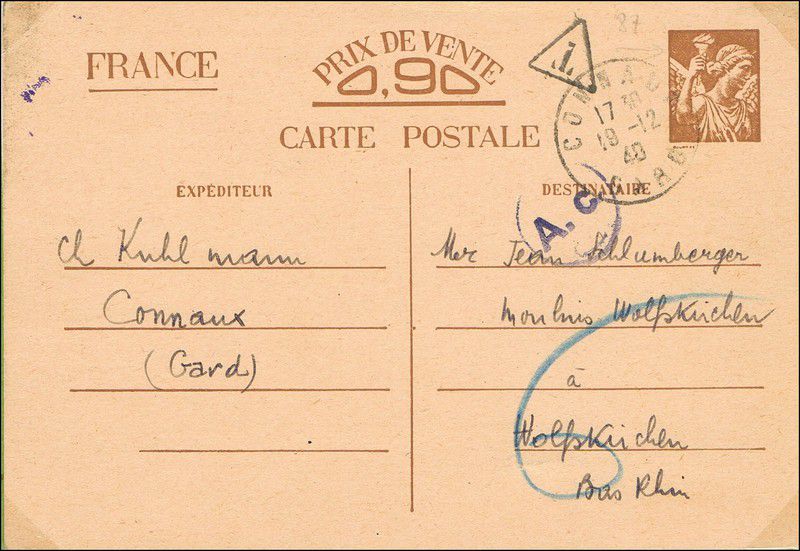 FRANCE
PRIX DE VENTE
0,90
CARTE POSTALE
1.
87
CONNAUX
17 30
19 -12
40
GARD
A.c.
EXPÉDITEUR
Ch Kuhlmann
Connaux
(Gard)
DESTINATAIRE
Mr Jean Schlumberger
Moulins Wolfskirchen
à
Wolfskirchen
Bas Rhin